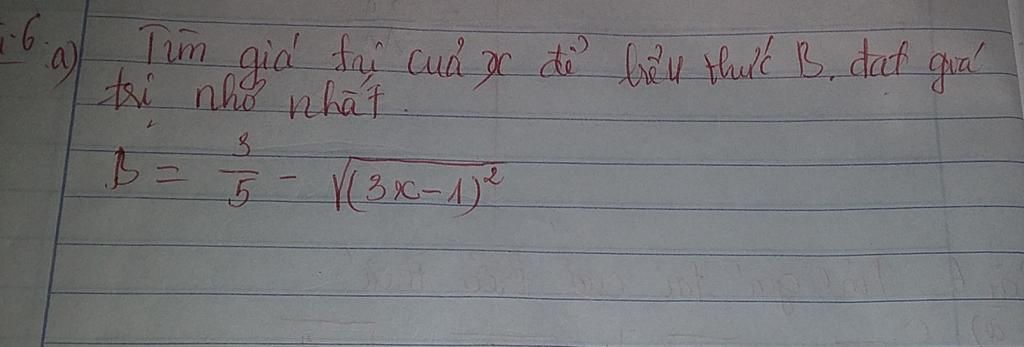 i.6. a) Tìm giá trị của x để biểu thức B. đạt giá
trị nhỏ nhất.
B = 3/5 - √(3x-1)²